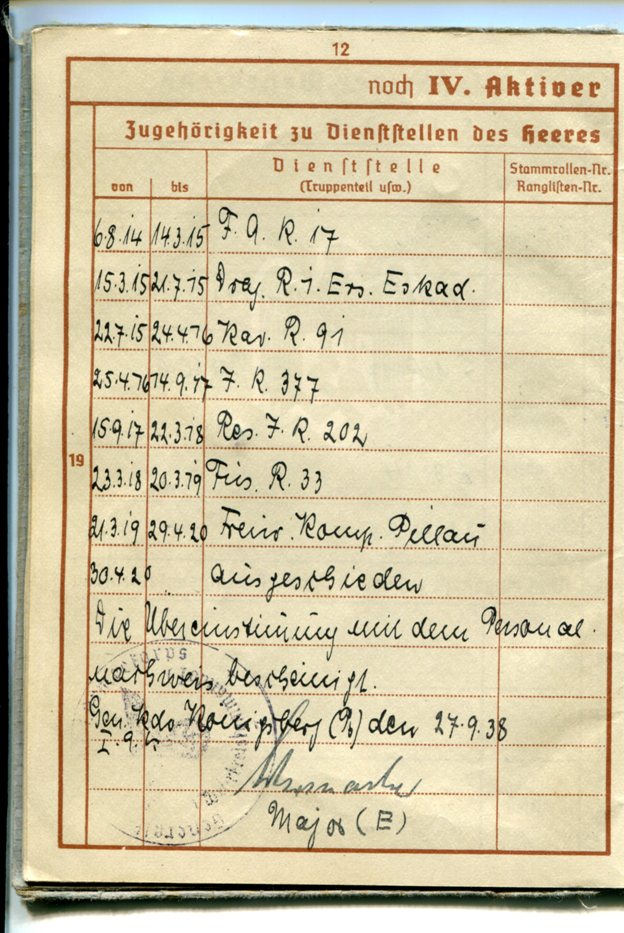 12
noch IV. Aktiver
Zugehörigkeit zu Dienststellen des Heeres
von bis Dienststelle (Truppenteil usw.) Stammrollen-Nr. Ranglisten-Nr.
6.8.14 14.3.15 F. A. R. 17
15.3.15 21.7.15 Drag. R. 1. Ers. Eskad.
22.7.15 24.4.16 Kav. R. 91
25.4.16 14.9.17 J. R. 377
15.9.17 22.3.18 Res. J. R. 202
19
23.3.18 20.3.19 Füs. R. 33
21.3.19 29.4.20 Freiw. Komp. Pillau
30.4.20 ausgeschieden
Die Übereinstimmung mit dem Personal-
nachweis bescheinigt.
Gen. Kdo. Königsberg (Pr) den 27.9.38
Major (E)